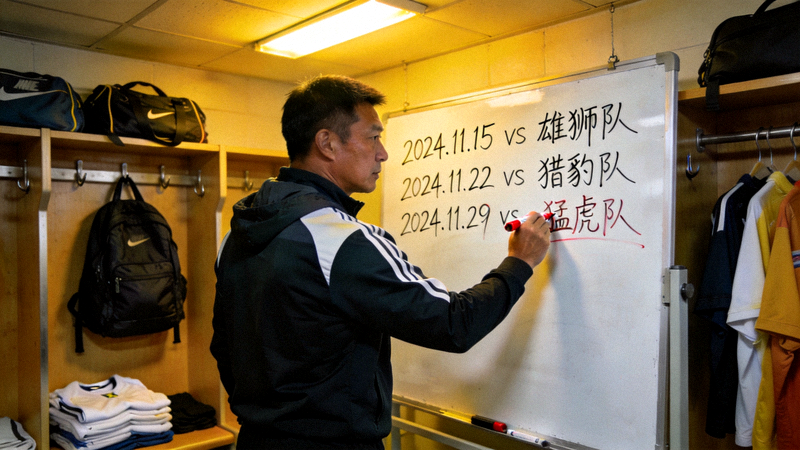 2024.11.15 vs 雄狮队
2024.11.22 vs 猎豹队
2024.11.29 vs 猛虎队